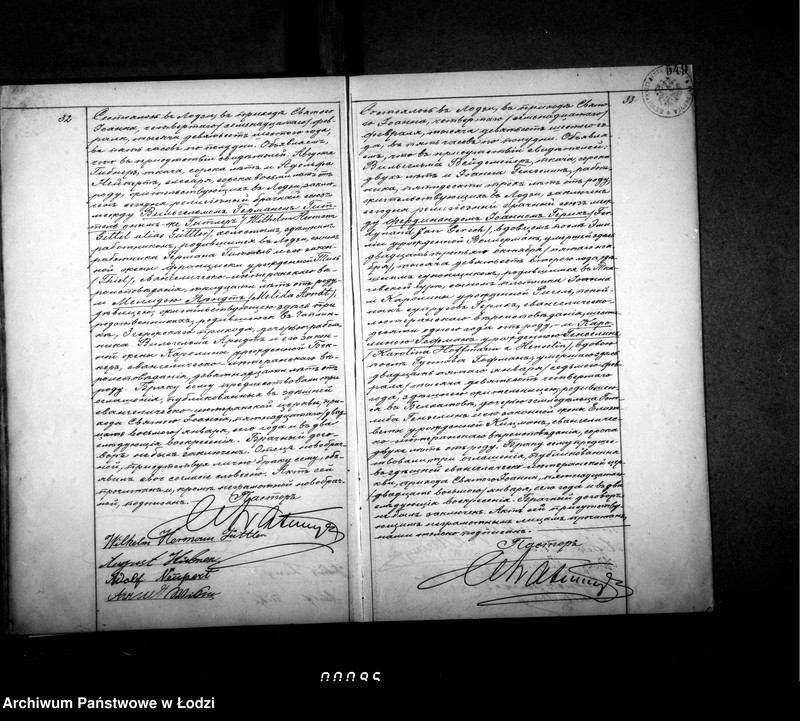 549
32
Состоялось въ Лодзи, въ приходѣ Святаго
Іоанна, четвертаго /семнадцатаго/ фев-
раля, тысяча девятьсотъ шестого года,
въ пять часовъ по полудни. Объявляемъ,
что въ присутствіи свидѣтелей: Августа
Гибнеръ, ткача, сорока лѣтъ и Адольфа
Нейперта, слесаря, сорока восьми лѣтъ отъ
роду, жительствующихъ въ Лодзи, заклю-
ченъ сегодня религіозный брачный союзъ
между Вильгельмомъ Германомъ
/Wilhelm Herman
Fittel alias Füttler/, холостымъ,
работникомъ, родившимся въ Лодзи, сыномъ
работника Германа и его закон-
ной жены урожденной Тиль
/Thiel/, евангелическо-лютеранскаго вѣ-
роисповѣданія, тридцати лѣтъ отъ роду
и Мелидою Арндтъ /Melida Arndt/,
дѣвицею, жительствующею здѣсь при
родственникахъ, родившеюся въ
Згержскаго прихода, дочерью работ-
ника Вильгельма Арндтъ и его закон-
ной жены Каролины урожденной
евангелическо-лютеранскаго вѣ-
роисповѣданія, девятнадцати лѣтъ отъ
роду. Браку сему предшествовали три
оглашенія, публикованныя въ здѣшней
евангелическо-лютеранской церкви, при-
хода Святого Іоанна, пятнадцатаго /двад-
цать восьмого/ января, сего года и въ два
слѣдующія воскресенія. Брачный дого-
воръ не былъ заключенъ. Отецъ новобрач-
ной, присутствуя лично браку сему, объ-
явилъ свое согласіе словесно. Актъ сей
прочитанъ и, кромѣ неграмотной новобрач-
ной, подписанъ. Пасторъ
Wilhelm Herman Füttler
August Hübner
Adolf Neupert
33
Состоялось въ Лодзи, въ приходѣ Свято-
го Іоанна, четвертаго /семнадцатаго/
февраля, тысяча девятьсотъ шестого го-
да, въ пять часовъ по полудни. Объявля-
емъ, что въ присутствіи свидѣтелей:
Вильгельма Вейдемейеръ, ткача, сорока
двухъ лѣтъ и Іоанна работ-
ника, пятидесяти трехъ лѣтъ отъ роду,
жительствующихъ въ Лодзи, заключенъ
сегодня религіозный брачный союзъ меж-
ду Фердинандомъ Іоанномъ
вдовцомъ послѣ
урожденной умершей
двадцать третьяго октября /пятаго ноя-
бря/, тысяча девятьсотъ второго года,
родившимся въ
сыномъ плотника Іоанна
и Каролины урожденной покой-
ныхъ супруговъ евангелическо-
лютеранскаго вѣроисповѣданія,
одного года отъ роду, и Каро-
линою Гофманъ урожденною Генселинъ
/Karolina Hoffmann z Henselin/, вдовою
послѣ Густава Гофманъ, умершаго здѣсь
двадцать пятаго января /седьмого фев-
раля/ тысяча девятьсотъ четвертаго
года, родившею-
ся въ Белхатовѣ, дочерью
и его законной жены Елиса-
веты урожденной евангеличес-
ко-лютеранскаго вѣроисповѣданія, сорока
двухъ лѣтъ отъ роду. Браку сему предше-
ствовали три оглашенія, публикованныя
въ здѣшней евангелическо-лютеранской цер-
кви, прихода Святого Іоанна, пятнадцатаго
/двадцать восьмого/ января, сего года и въ два
слѣдующія воскресенія. Брачный договоръ
не былъ заключенъ. Актъ сей присутству-
ющимъ неграмотнымъ лицамъ прочитанъ,
нами только подписанъ.
Пасторъ
00095
Archiwum Państwowe w Łodzi